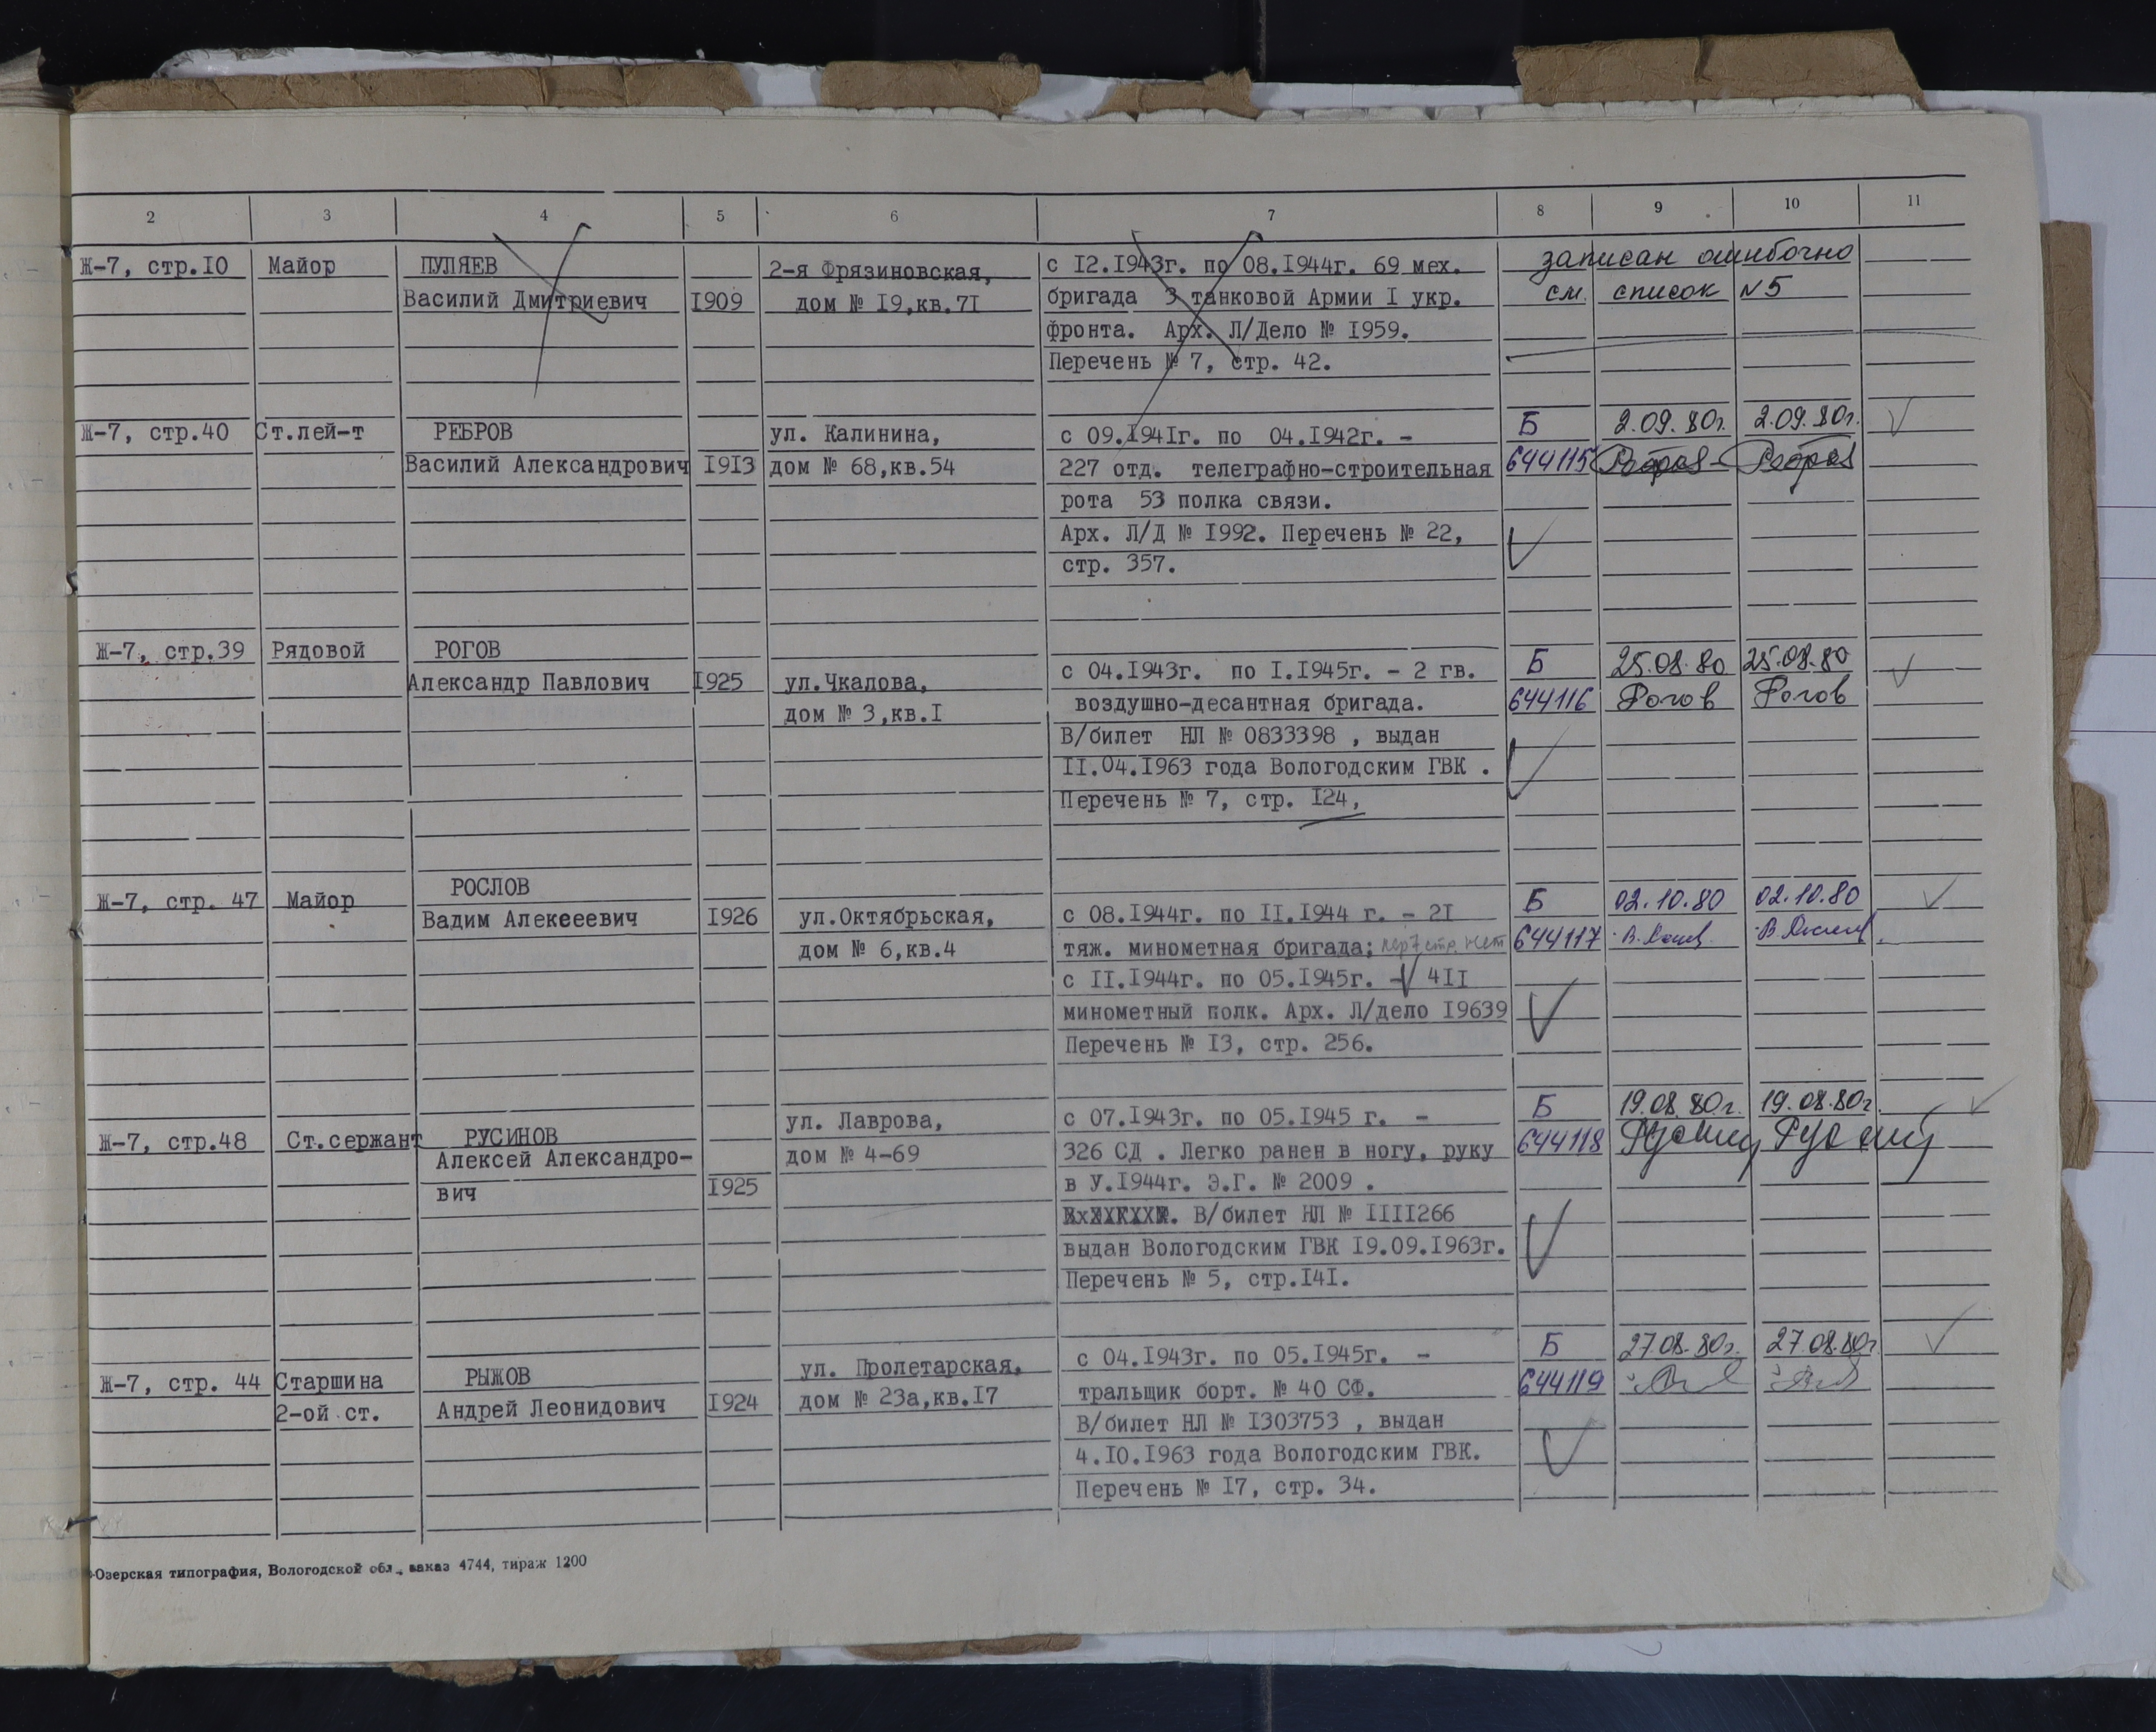 2 3 4 5 6 7 8 9 10 11
Ж-7, стр.10 Майор ПУЛЯЕВ 2-я Фрязиновская, с 12.1943г. по 08.1944г. 69 мех. записан ошибочно
Василий Дмитриевич 1909 дом № 19,кв.71 бригада 3 танковой Армии 1 укр. см. список N5
фронта. Арх. Л/Дело № 1959.
Перечень № 7, стр. 42.
Ж-7, стр.40 Ст.лей-т РЕБРОВ ул. Калинина, с 09.1941г. по 04.1942г. - Б 2.09.80г. 2.09.80г.
Василий Александрович 1913 дом № 68,кв.54 227 отд. телеграфно-строительная 644115
рота 53 полка связи.
Арх. Л/Д № 1992. Перечень № 22,
стр. 357.
Ж-7, стр.39 Рядовой РОГОВ с 04.1943г. по 1.1945г. - 2 гв. Б 25.08.80 25.08.80
Александр Павлович 1925 ул.Чкалова, воздушно-десантная бригада. 644116 Рогов Рогов
дом № 3,кв.1 В/билет НЛ № 0833398 , выдан
11.04.1963 года Вологодским ГВК .
Перечень № 7, стр. 124,
Ж-7, стр. 47 Майор РОСЛОВ Б 02.10.80 02.10.80
Вадим Алекееевич 1926 ул.Октябрьская, с 08.1944г. по 11.1944 г. - 21
дом № 6,кв.4 тяж. минометная бригада; пер 7 стр. нет 644117
с 11.1944г. по 05.1945г. - 411
минометный полк. Арх. Л/дело 19639
Перечень № 13, стр. 256.
Ж-7, стр.48 Ст.сержант РУСИНОВ ул. Лаврова, с 07.1943г. по 05.1945 г. - Б 19.08.80г. 19.08.80г.
Алексей Александро- дом № 4-69 326 СД . Легко ранен в ногу, руку 644118
вич 1925 в У.1944г. Э.Г. № 2009 .
В/билет НЛ № 1111266
выдан Вологодским ГВК 19.09.1963г.
Перечень № 5, стр.141.
Ж-7, стр. 44 Старшина РЫЖОВ ул. Пролетарская, с 04.1943г. по 05.1945г. - Б 27.08.80г. 27.08.80г
2-ой ст. Андрей Леонидович 1924 дом № 23а,кв.17 тральщик борт. № 40 СФ. 644119
В/билет НЛ № 1303753 , выдан
4.10.1963 года Вологодским ГВК.
Перечень № 17, стр. 34.
Озерская типография, Вологодской обл., заказ 4744, тираж 1200